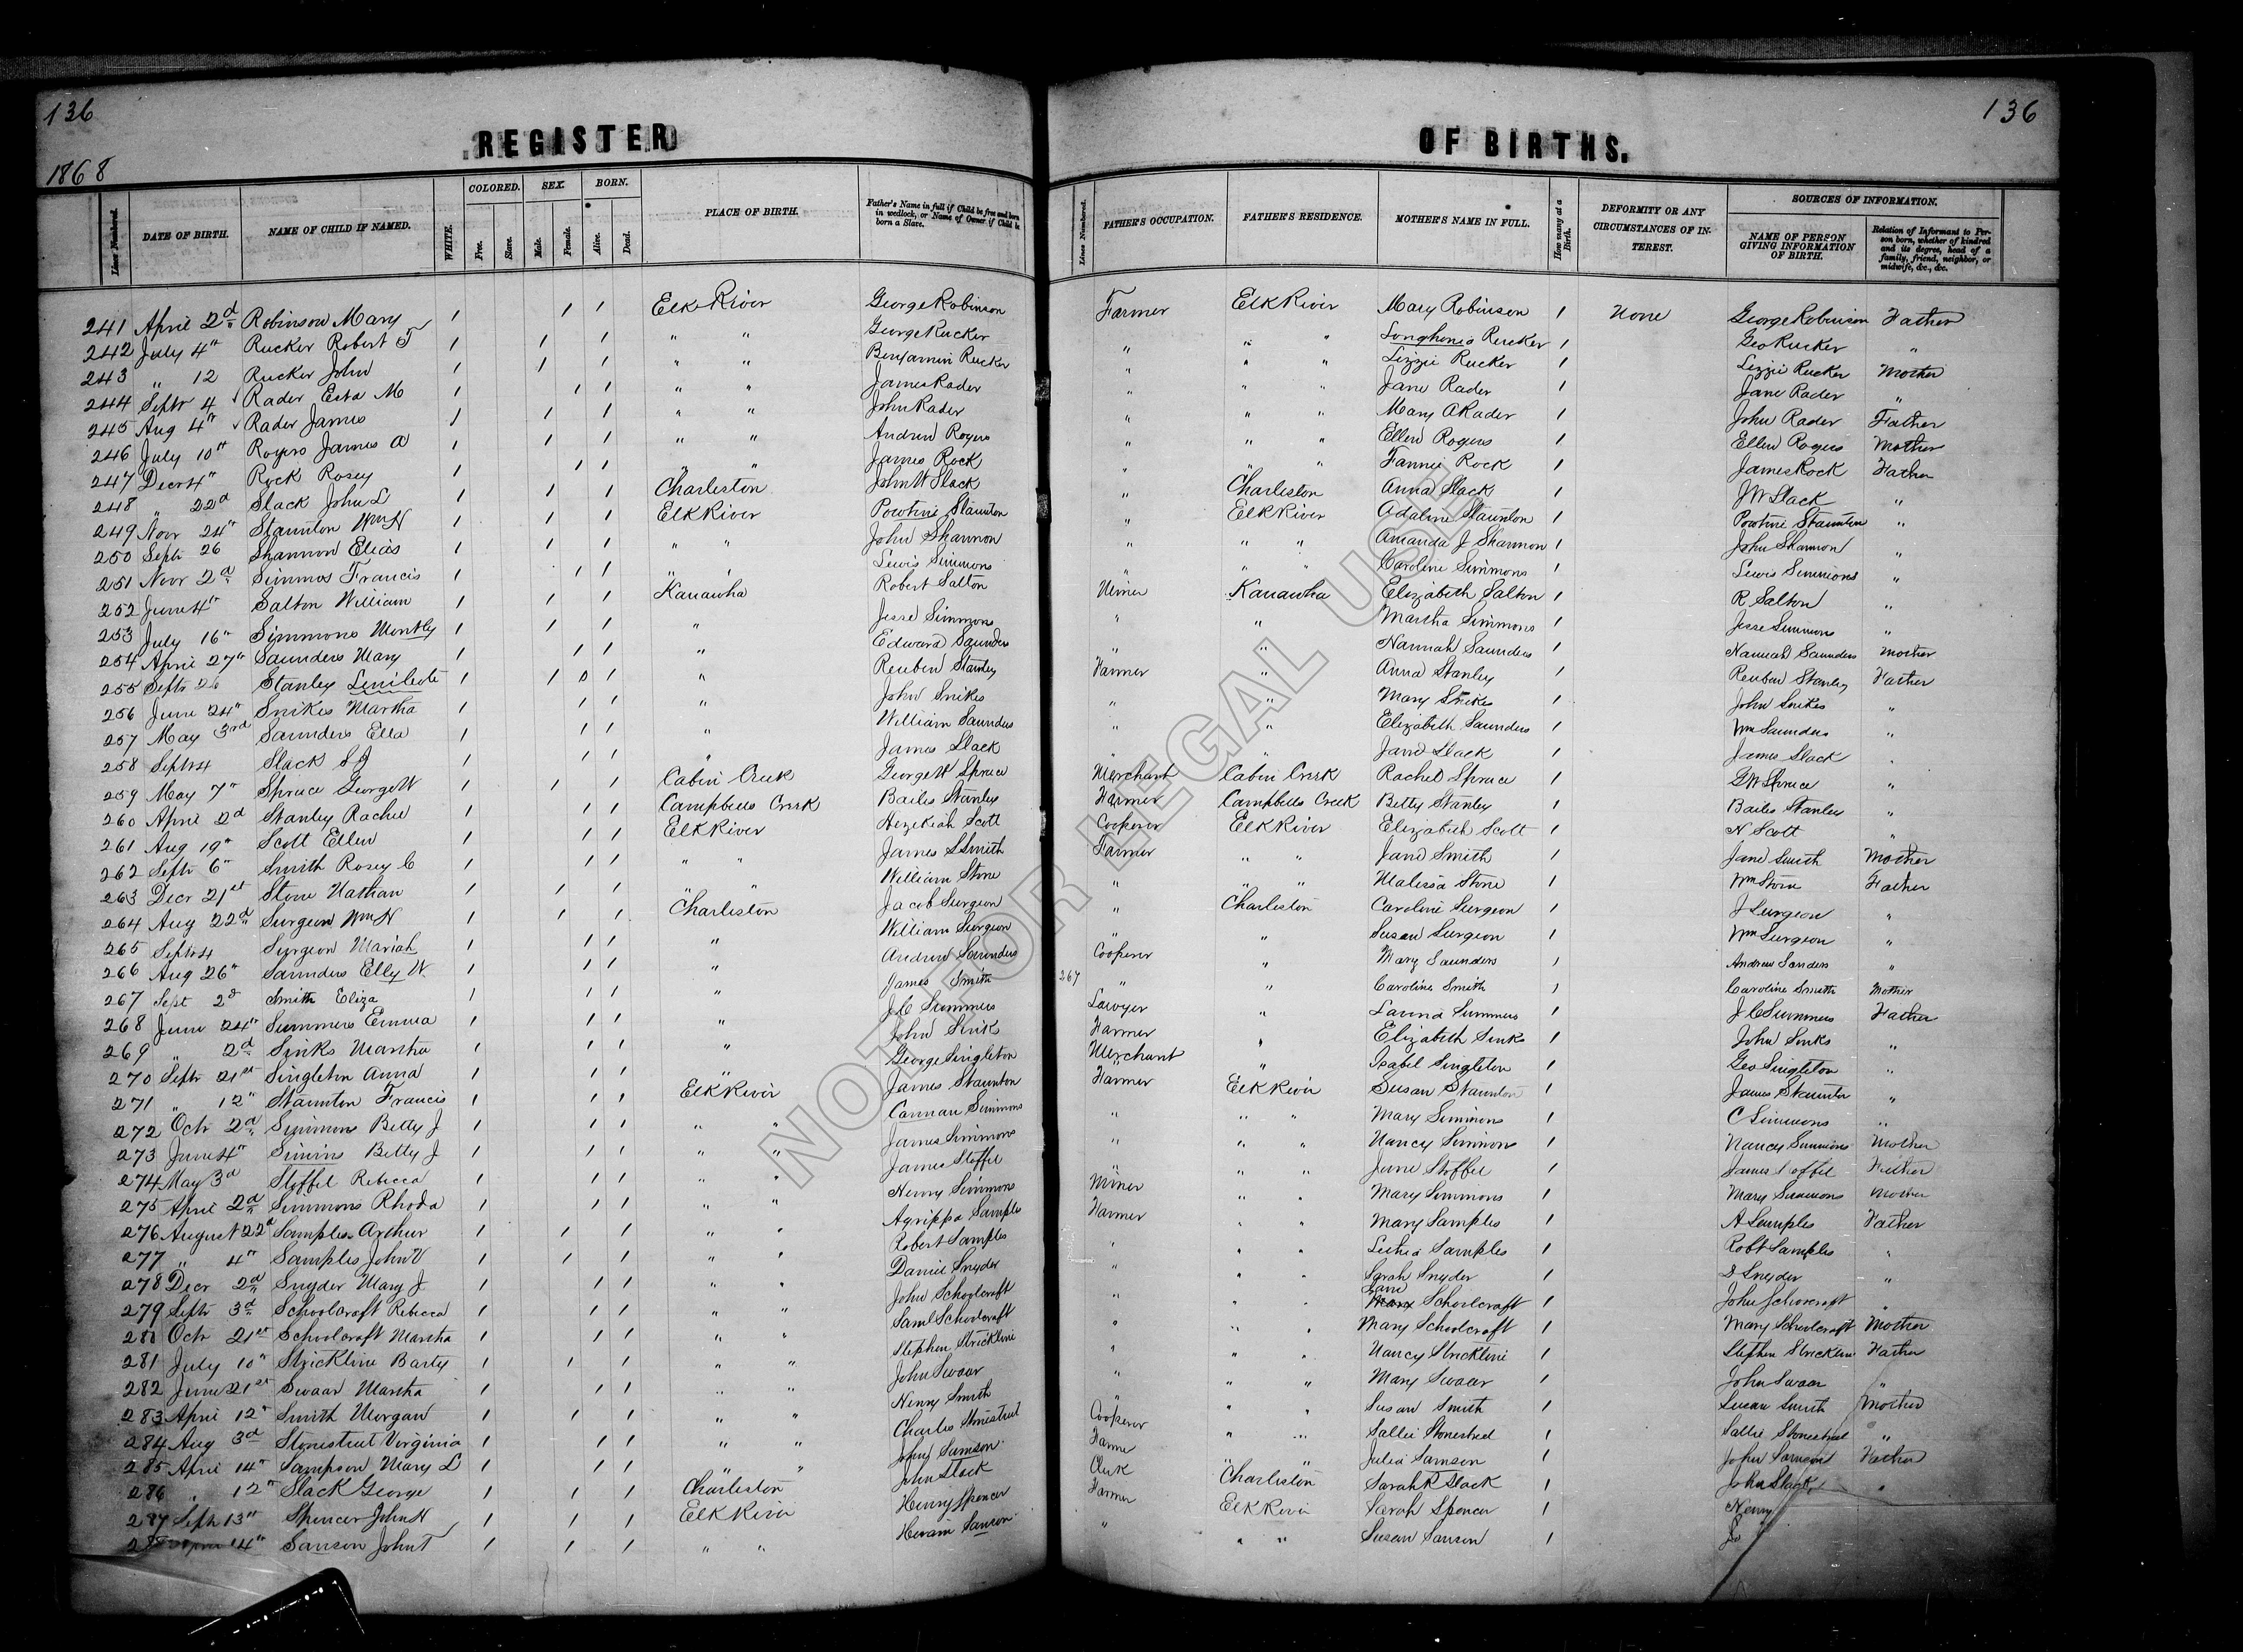 136
136
REGISTER OF BIRTHS.
1868
Lines Numbered. DATE OF BIRTH. NAME OF CHILD IF NAMED. WHITE. COLORED. Free. Slave. SEX. Male. Female. BORN. Alive. Dead. PLACE OF BIRTH. Father's Name in full if Child be free and born in wedlock, or Name of Owner if Child be born a Slave. Lines Numbered. FATHER'S OCCUPATION. FATHER'S RESIDENCE. MOTHER'S NAME IN FULL. How many at a Birth. DEFORMITY OR ANY CIRCUMSTANCES OF INTEREST. SOURCES OF INFORMATION. NAME OF PERSON GIVING INFORMATION OF BIRTH. Relation of Informant to Person born, whether of kindred and its degree, head of a family, friend, neighbor, or midwife, &c., &c.
241 April 2d Robinson Mary 1 1 1 Elk River George Robinson Farmer Elk River Mary Robinson 1 None George Robinson Father
242 July 4th Rucker Robert T 1 1 1 " " George Rucker " " " Rucker 1 Geo Rucker "
243 " 12 Rucker John 1 1 1 " " Benjamin Rucker " " " Lizzie Rucker 1 Lizzie Rucker Mother
244 Septr 4 Rader Esta M 1 1 1 " " James Rader " " " Jane Rader 1 Jane Rader "
245 Aug 4th Rader James 1 1 1 " " John Rader " " " Mary A Rader 1 John Rader Father
246 July 10th Rogers James A 1 1 1 " " Andrew Rogers " " " Ellen Rogers 1 Ellen Rogers Mother
247 Decr 4th Rock Rosey 1 1 1 " " James Rock " " " Fannie Rock 1 James Rock Father
248 " 22d Slack John L 1 1 1 Charleston John W Slack " Charleston Anna Slack 1 J W Slack "
249 Novr 24th Staunton Wm H 1 1 1 Elk River Staunton " Elk River Adaline Staunton 1 Staunton "
250 Septr 26 Shannon Elias 1 1 1 " " John Shannon " " " Amanda J Shannon 1 John Shannon "
251 Novr 2d Simmos Francis 1 1 1 " " Lewis Simmons " " Caroline Simmons 1 Lewis Simmons "
252 June 4th Salton William 1 1 1 Kanawha Robert Salton Miner Kanawha Elizabeth Salton 1 R Salton "
253 July 16th Simmons 1 1 1 " Jesse Simmons " " Martha Simmons 1 Jesse Simmons "
254 April 27th Saunders Mary 1 1 1 " Edward Saunders " " Hannah Saunders 1 Hannah Saunders Mother
255 Septr 26 Stanley 1 1 0 1 " Reuben Stanley Farmer " Anna Stanley 1 Reuben Stanley Father
256 June 24th Snikes Martha 1 1 1 " John Snikes " " Mary Snikes 1 John Snikes "
257 May 3rd Saunders Ella 1 1 1 " William Saunders " " Elizabeth Saunders 1 Wm Saunders "
258 Septr 4 Slack S J 1 1 1 " James Slack " " Jane Slack 1 James Slack "
259 May 7th Spruce George W 1 1 1 Cabin Creek George W Spruce Merchant Cabin Creek Rachel Spruce 1 G W Spruce "
260 April 2d Stanley Rachel 1 1 1 Campbells Creek Bailes Stanley Farmer Campbells Creek Betty Stanley 1 Bailes Stanley "
261 Aug 19th Scott Ellen 1 1 1 Elk River Hezekiah Scott Cooperer Elk River Elizabeth Scott 1 H Scott "
262 Septr 6th Smith Rosey C 1 1 1 " " James S Smith Farmer " " Jane Smith 1 Jane Smith Mother
263 Decr 21st Stone Nathan 1 1 1 " " William Stone " " " Malissa Stone 1 Wm Stone Father
264 Aug 22d Surgeon Wm H 1 1 1 Charleston Jacob Surgeon " Charleston Caroline Surgeon 1 J Surgeon "
265 Septr 4 Surgeon Mariah 1 1 1 " William Surgeon " " Susan Surgeon 1 Wm Surgeon "
266 Aug 26th Saunders Elly W 1 1 1 " Andrew Saunders Cooperer " Mary Saunders 1 Andrew Sanders "
267 Sept 2d Smith Eliza 1 1 1 " James Smith 267 " " Caroline Smith 1 Caroline Smith Mother
268 June 24th Summers Emma 1 1 1 " J C Summers Lawyer " Summers 1 J C Summers Father
269 " 2d Sinks Martha 1 1 1 " John Sinks Farmer " Elizabeth Sinks 1 John Sinks "
270 Septr 21st Singleton Anna 1 1 1 " George Singleton Merchant " Isabel Singleton 1 Geo Singleton "
271 " 12th Staunton Francis 1 1 1 Elk River James Staunton Farmer Elk River Susan Staunton 1 James Staunton "
272 Octr 2d Simmons Betty J 1 1 1 " " Simmons " " " Mary Simmons 1 C Simmons "
273 June 4th Simins Betty J 1 1 1 " " James Simmons " " " Nancy Simmons 1 Nancy Simmons Mother
274 May 3d Stoffel Rebecca 1 1 1 " " James Stoffel " " " Jane Stoffel 1 James Stoffel Father
275 April 2d Simmons Rhoda 1 1 1 " " Henry Simmons Miner " " Mary Simmons 1 Mary Simmons Mother
276 August 22d Samples Arthur 1 1 1 " " Agrippa Samples Farmer " " Mary Samples 1 A Samples Father
277 " 4th Samples John V 1 1 1 " " Robert Samples " " " Samples 1 Robt Samples "
278 Decr 2d Snyder Mary J 1 1 1 " " Daniel Snyder " " " Sarah Snyder 1 D Snyder "
279 Septr 3d Schoolcraft Rebecca 1 1 1 " " John Schoolcraft " " " Jane Schoolcraft 1 John Schoolcraft "
280 Octr 21st Schoolcraft Martha 1 1 1 " " Saml Schoolcraft " " " Mary Schoolcraft 1 Mary Schoolcraft Mother
281 July 10th Strickline Barty 1 1 1 " " Stephen Strickline " " " Nancy Strickline 1 Stephen Strickline Father
282 June 21st Swaar Martha 1 1 1 " " John Swaar " " " Mary Swaar 1 John Swaar "
283 April 12th Smith Morgan 1 1 1 " " Henry Smith " " " Susan Smith 1 Susan Smith Mother
284 Aug 3d Stonestreet Virginia 1 1 1 " " Charles Stonestreet Cooperer " " Sallie Stonestreet 1 Sallie Stonestreet "
285 April 14th Sampson Mary L 1 1 1 " " John Samson Farmer " " Julia Samson 1 John Samson Father
286 " 12th Slack George 1 1 1 Charleston John Slack Clerk Charleston Sarah R Slack 1 John Slack "
287 Septr 13th Spencer John H 1 1 1 Elk River Henry Spencer Farmer Elk River Sarah Spencer 1 Henry
14th Sanson John T 1 1 1 " " Hiram Sanson " " " Susan Sanson 1
NOT FOR LEGAL USE